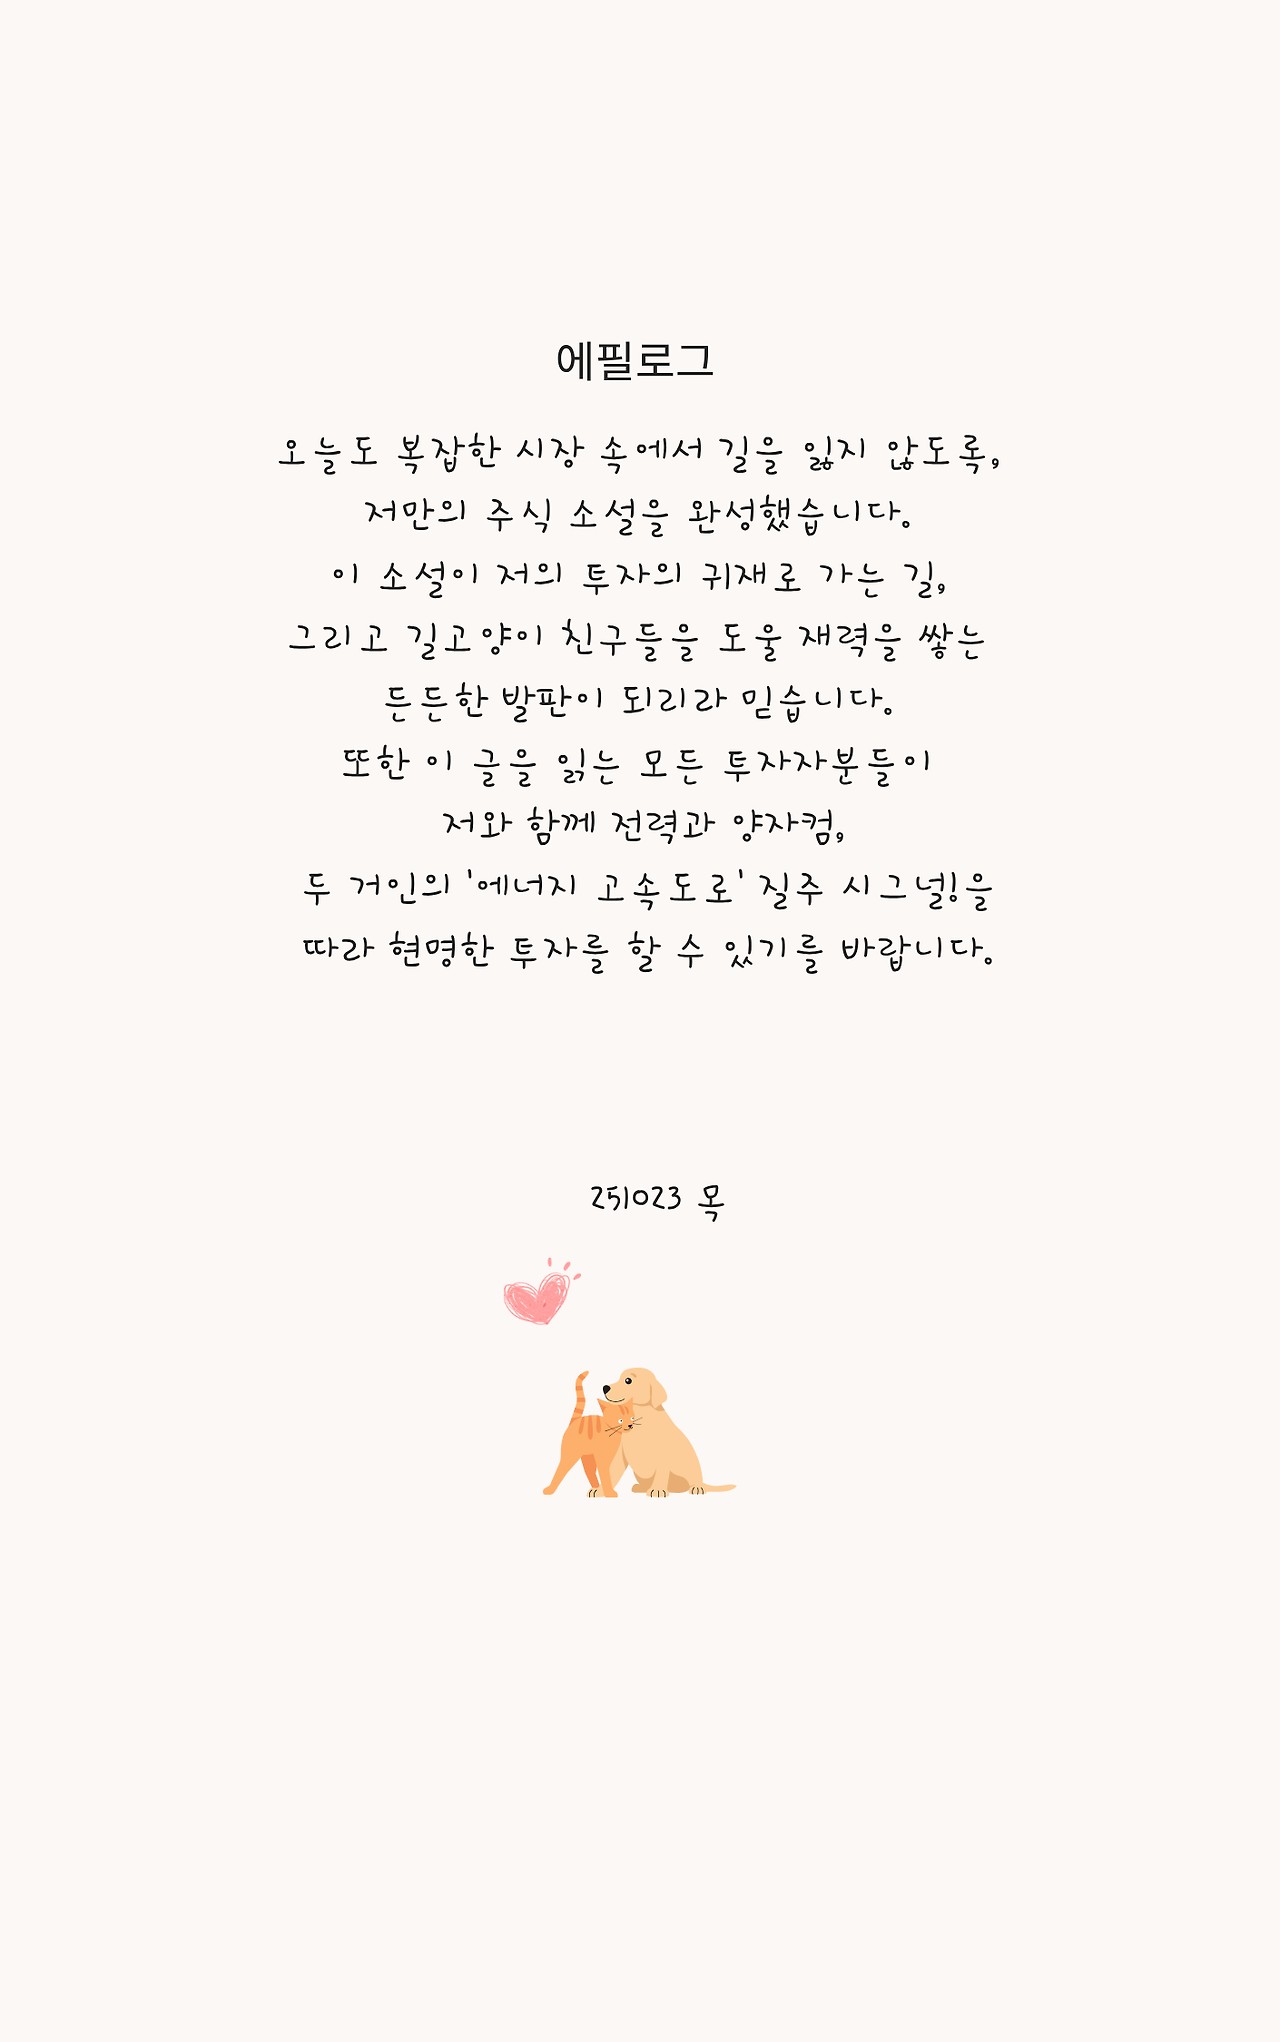 에필로그
오늘도 복잡한 시장 속에서 길을 잃지 않도록,
저만의 주식 소설을 완성했습니다.
이 소설이 저의 투자의 귀재로 가는 길,
그리고 길고양이 친구들을 도울 재력을 쌓는
든든한 발판이 되리라 믿습니다.
또한 이 글을 읽는 모든 투자자분들이
저와 함께 전력과 양자컴,
두 거인의 '에너지 고속도로' 질주 시그널!을
따라 현명한 투자를 할 수 있기를 바랍니다.
251023 목